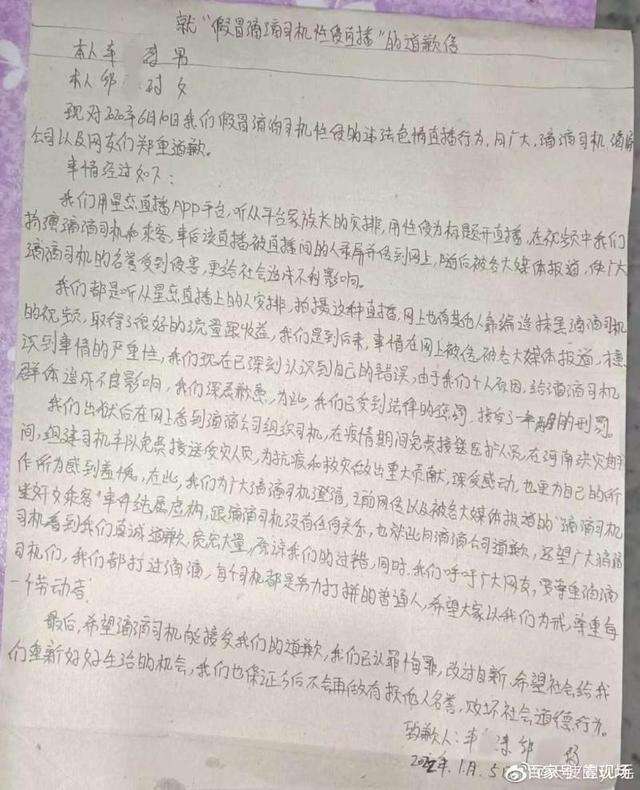 就“假冒滴滴司机性侵直播”的道歉信
本人车 男
本人邹 女
现对2020年6月10日我们假冒滴滴司机性侵的违法色情直播行为,向广大滴滴司机 滴滴
公司以及网友们郑重道歉。
事情经过如下:
我们用星恋直播APP平台,听从平台家族长的安排,用性侵为标题开直播,在视频中我们
扮演滴滴司机和乘客,事后该直播被直播间的人录屏并传到网上,随后被各大媒体报道,使广大
滴滴司机的名誉受到侵害,更给社会造成不利影响。
我们都是听从星恋直播上的人安排,拍摄这种直播,网上也有其他人靠编造抹黑滴滴司机
的视频,取得了很好的流量跟收益,我们是到后来,事情在网上被传,被各大媒体报道,才意
识到事情的严重性,我们现在已深刻认识到自己的错误,由于我们个人原因,给滴滴司机
群体造成不良影响,我们深感歉意,为此,我们已受到法律的惩罚,接受了一年的刑罚。
我们出狱后在网上看到滴滴公司组织司机,在疫情期间免费接送医护人员,在河南洪灾期
间,组建司机车队免费接送受灾人员,为抗疫和救灾做出重大贡献,深受感动,也更为自己的所
作所为感到羞愧。在此,我们为广大滴滴司机澄清,之前网传以及被各大媒体报道的“滴滴司机
迷奸女乘客”事件结属虚构,跟滴滴司机没有任何关系,也就此向滴滴公司道歉,还望广大滴滴
司机看到我们真诚道歉,宽宏大量,原谅我们的过错,同时,我们呼吁广大网友,要尊重滴滴
司机们,我们都打过滴滴,每个司机都是努力打拼的普通人,希望大家以我们为戒,尊重每
一个劳动者!
最后,希望滴滴司机能接受我们的道歉,我们已认罪悔罪,改过自新,希望社会给我
们重新好好生活的机会,我们也保证今后不会再做有损他人名誉,败坏社会道德行为。
致歉人:车 邹
2022年.1月.5日
百家号
现场